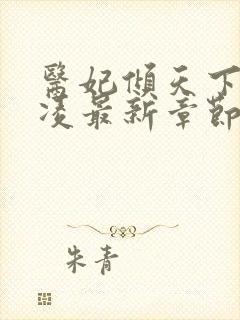 醫妃傾天下
凌最新章節
朱青